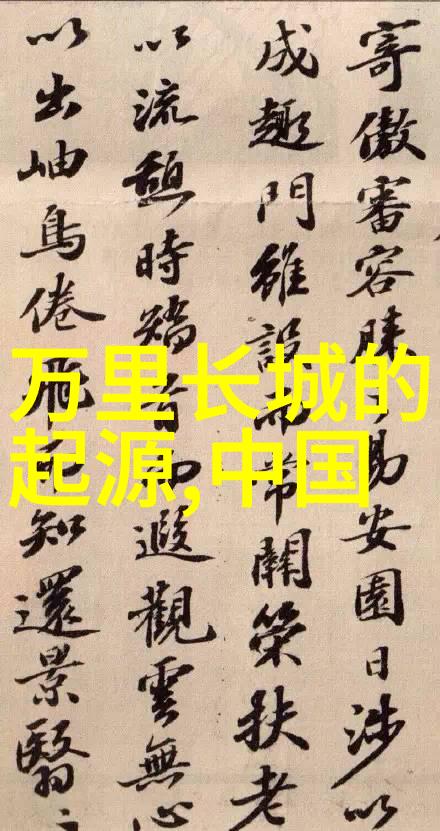 万里长城的
起源,中国
寄傲審容膝易安園日涉以
成趣門雖設而常關策扶老
以流憩時矯首而遐觀雲無心
以出岫鳥倦飛而知還景翳